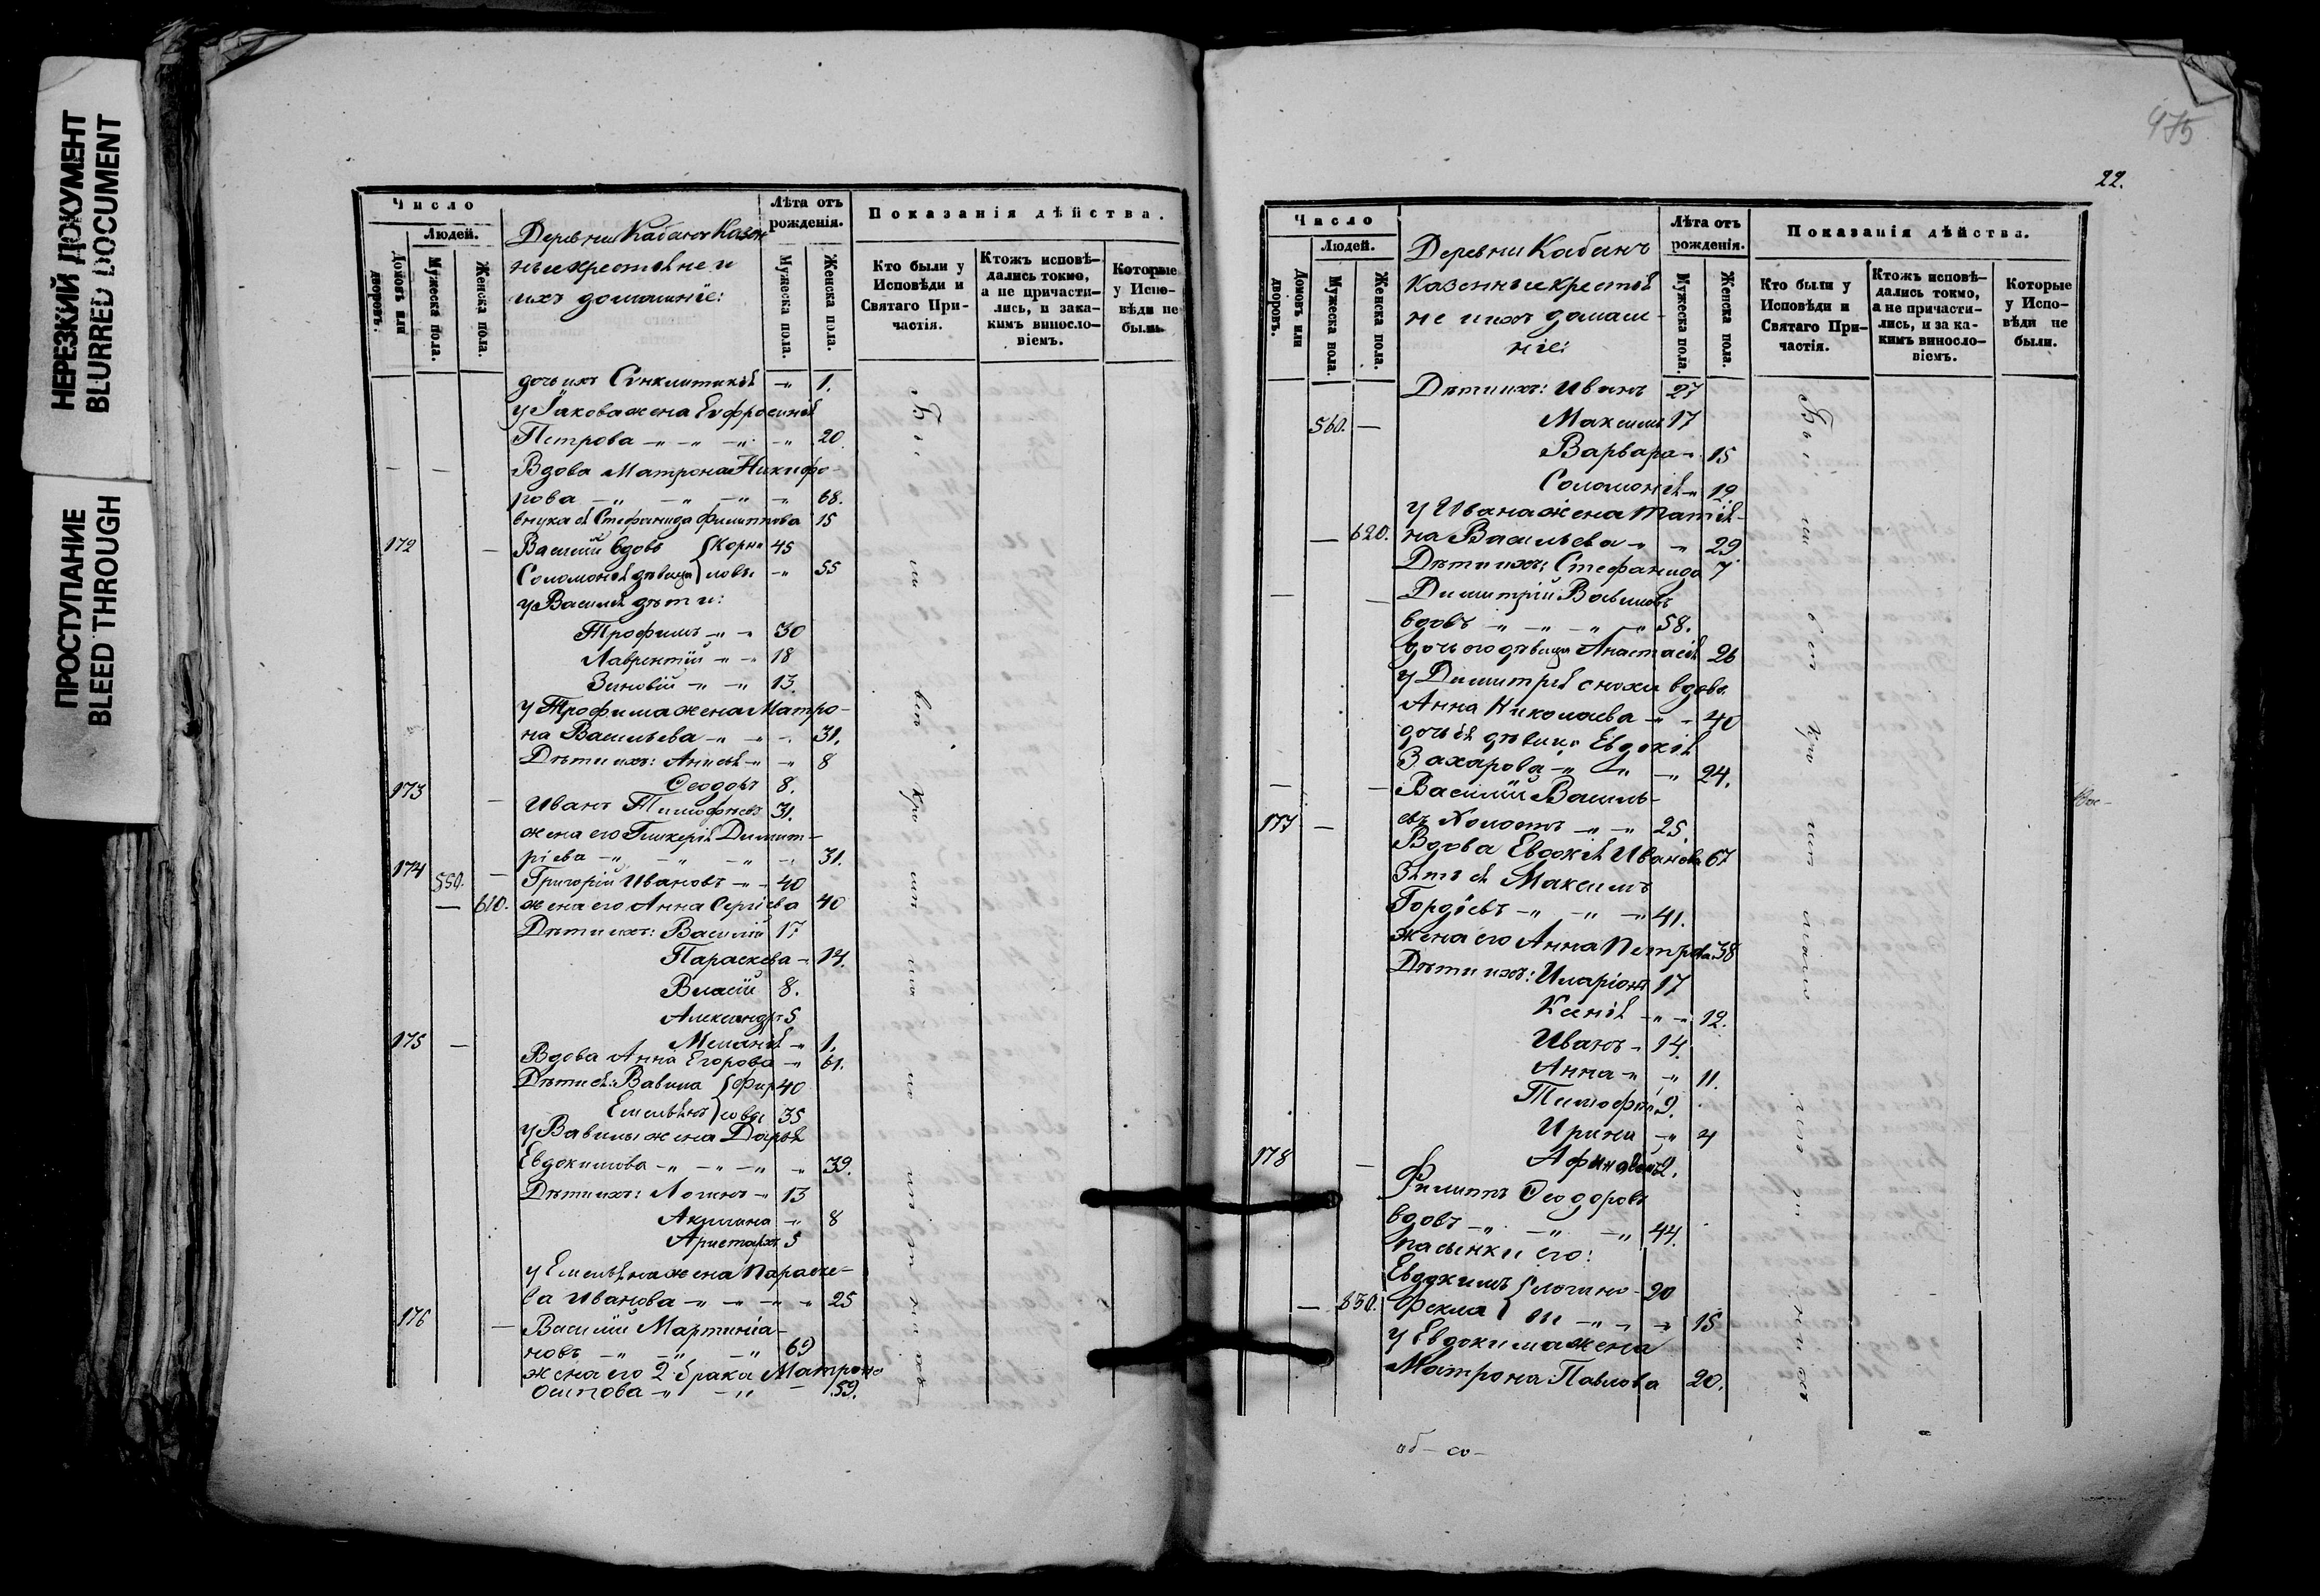 НЕРЕЗКИЙ ДОКУМЕНТ
BLURRED DOCUMENT
ПРОСТУПАНИЕ
BLEED THROUGH
Число
Людей.
Домовъ или дворовъ.
Мужеска пола.
Женска пола.
Деревни Кабанъ Казен
ныекрестьяне и
ихъ домашніе:
Лѣта отъ рожденія.
Мужеска пола.
Женска пола.
Показанія дѣйства.
Кто были у Исповѣди и Святаго При-частія.
Ктожъ исповѣ-дались токмо, а не причасти-лись, и зака-кимъ винос­ло-віемъ.
Которые у Испо-вѣди не были.
дочь ихъ Сѵнклитикія -"- 1.
у Іакова жена Евфросинія
Петрова -"- -"- -"- -"- 20
Вдова Матрона Никифо-
рова -"- -"- -"- -"- 68.
внука ея Стефанида Филиппова 15
172 — Василій вдовъ {Корни 45
Соломонія дѣвица} ловы -"- 55
у Василія дѣти:
Трофимъ -"- -"- 30
Лаврентій -"- -"- 18
Зиновій -"- -"- 13.
у Трофима жена Матро-
на Васильева -"- -"- - 31.
Дѣти ихъ: Анисія -"- -"- 8
Ѳеодоръ 8.
173 — Иванъ Тимофѣевъ 31.
жена его Гликерія Димит-
ріева -"- -"- -"- -"- 31.
174 550. — Григорій Ивановъ -"- - 40
— 610. жена его Анна Сергіева 40
Дѣти ихъ: Василій 17
Параскева -"- 14.
Власій 8.
Александръ 5
Меланія -"- 1.
175 — Вдова Анна Егорова -"- 61.
Дѣти ея: Вавила {Фир 40
Емельянъ} совы 35
у Вавилы жена Дарья
Евдокимова -"- -"- -"- -"- 39.
Дѣти ихъ: Логинъ -"- 13
Акилина -"- 8
Аристархъ 5
у Емельяна жена Параске-
ва Иванова -"- -"- -"- -"- 25
176 — Василій Мартиніа-
новъ -"- -"- -"- 69
жена его 2 брака Матрона
Осипова -"- -"- — 59.
Бы ли всѣ кро мѣ
475
22.
Число
Людей.
Домовъ или дворовъ.
Мужеска пола.
Женска пола.
Деревни Кабанъ
казенныекрестья
не ихъ домаш-
ніе:
Лѣта отъ рожденія.
Мужеска пола.
Женска пола.
Показанія дѣйства.
Кто были у Исповѣди и Святаго При-частія.
Ктожъ исповѣ-дались токмо, а не причасти-лись, и за ка-кимъ винос­ло-віемъ.
Которые у Испо-вѣди не были.
Дѣти ихъ: Иванъ 27
560. — Максимъ 17
Варвара -"- 15
Соломонія -"- 12.
у Ивана жена Татія-
— 620. на Васильева -"- -"- 29
Дѣти ихъ: Стефанида 7
— — Димитрій Вавиловъ
вдовъ -"- -"- -"- -"- 58.
дочь его дѣвица Анастасія 26
у Димитрія сноха вдова
Анна Николаева -"- - 40
дочь ея дѣвица Евдокія
Захарова -"- -"- -"- 24.
— — Василій Василь-
евъ Холостъ -"- -"- 25.
177 — Вдова Евдокія Иванова 67
Зять ея Максимъ
Гордіевъ -"- -"- -"- 41.
жена его Анна Петрова 38
Дѣти ихъ: Иларіонъ 17
Ксенія -"- -"- 12.
Иванъ -"- 14.
Анна -"- -"- 11.
Тимофей 9.
Ирина -"- 4
178 — 2.
Филиппъ Ѳеодоровъ
вдовъ -"- -"- -"- 44.
пасынки его:
Евдокимъ {Логино- 20
— 630. Фекла} вы -"- -"- -"- 15
у Евдокима жена
Матрона Павлова 20.